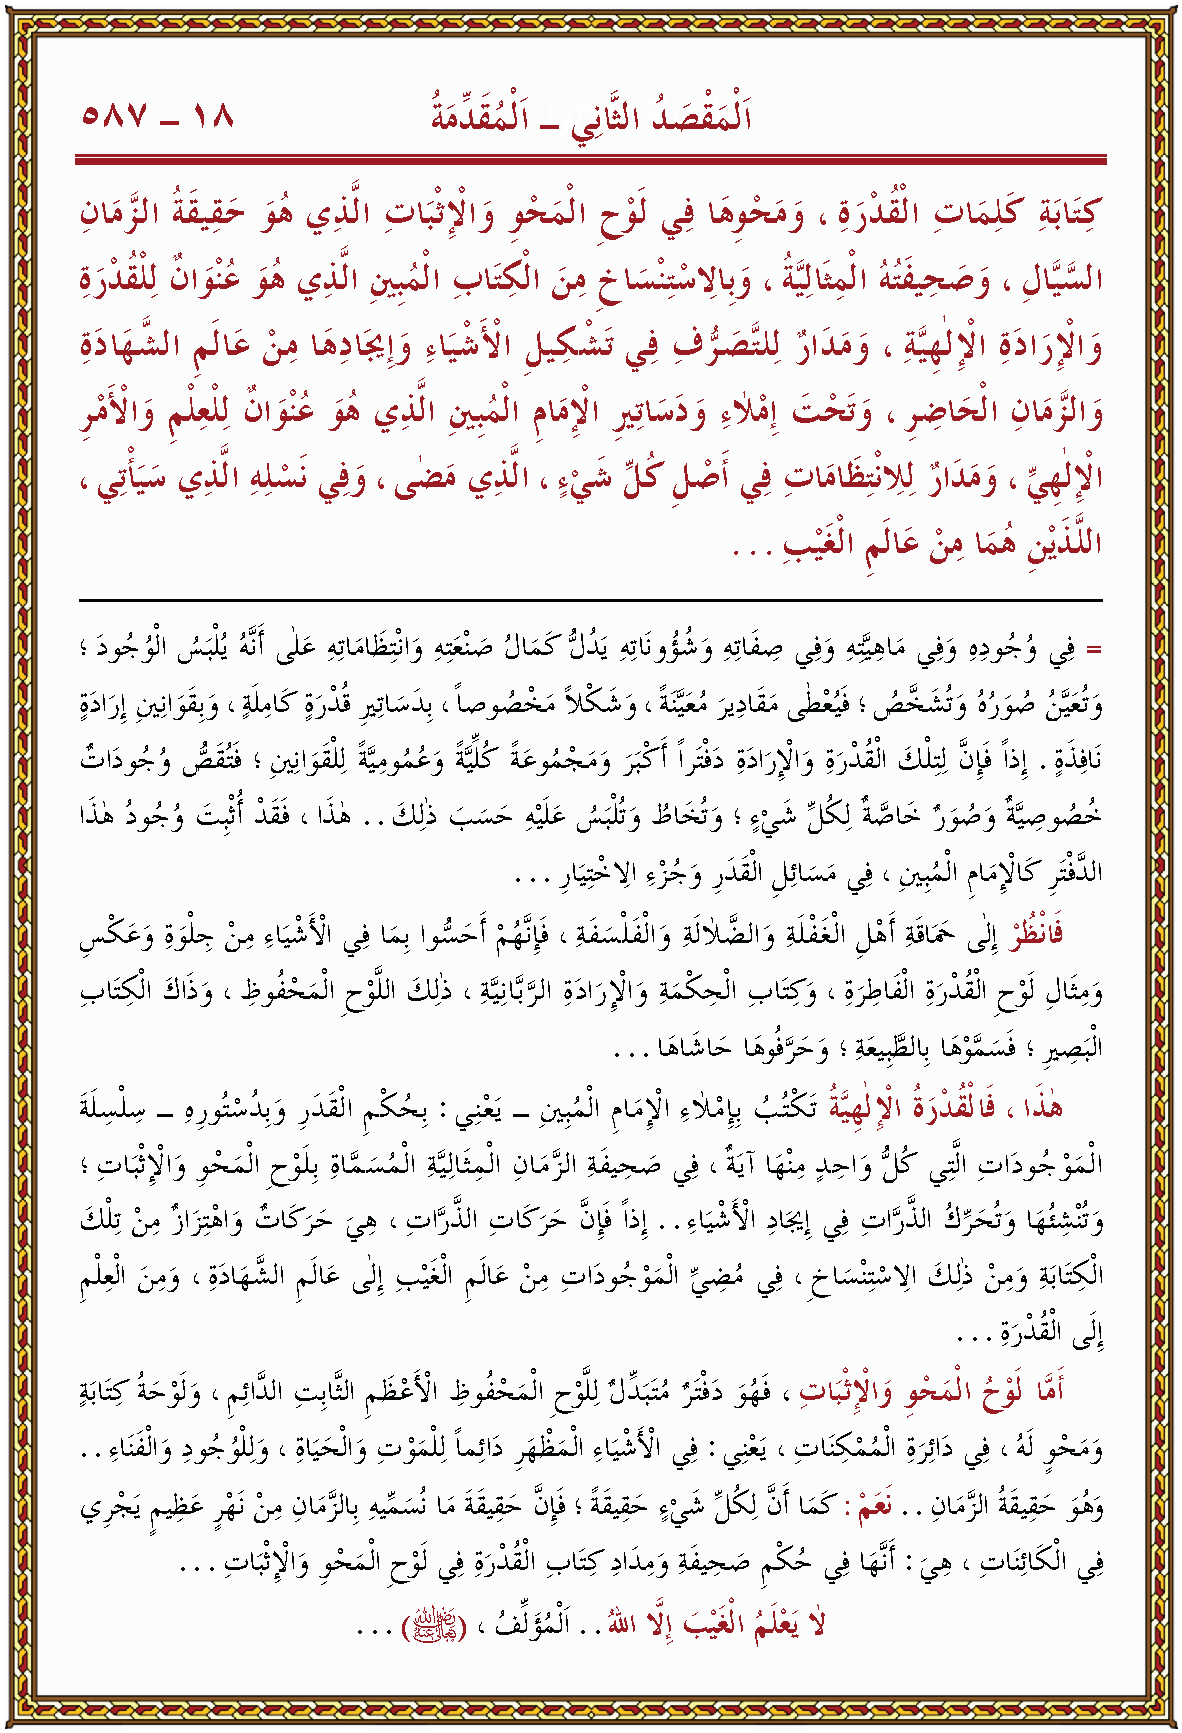 اَلْمَقْصَدُ الثَّانِي ــ اَلْمُقَدِّمَةُ ١٨ ــ ٥٨٧
كِتَابَةِ كَلِمَاتِ الْقُدْرَةِ ، وَمَحْوِهَا فِي لَوْحِ الْمَحْوِ وَالْإِثْبَاتِ الَّذِي هُوَ حَقِيقَةُ الزَّمَانِ
السَّيَّالِ ، وَصَحِيفَتُهُ الْمِثَالِيَّةُ ، وَبِالِاسْتِنْسَاخِ مِنَ الْكِتَابِ الْمُبِينِ الَّذِي هُوَ عُنْوَانٌ لِلْقُدْرَةِ
وَالْإِرَادَةِ الْإِلٰهِيَّةِ ، وَمَدَارٌ لِلتَّصَرُّفِ فِي تَشْكِيلِ الْأَشْيَاءِ وَإِيجَادِهَا مِنْ عَالَمِ الشَّهَادَةِ
وَالزَّمَانِ الْحَاضِرِ ، وَتَحْتَ إِمْلٰاءِ وَدَسَاتِيرِ الْإِمَامِ الْمُبِينِ الَّذِي هُوَ عُنْوَانٌ لِلْعِلْمِ وَالْأَمْرِ
الْإِلٰهِيِّ ، وَمَدَارٌ لِلِانْتِظَامَاتِ فِي أَصْلِ كُلِّ شَيْءٍ ، الَّذِي مَضٰى ، وَفِي نَسْلِهِ الَّذِي سَيَأْتِي ،
اللَّذَيْنِ هُمَا مِنْ عَالَمِ الْغَيْبِ . . .
= فِي وُجُودِهِ وَفِي مَاهِيَّتِهِ وَفِي صِفَاتِهِ وَشُؤُونَاتِهِ يَدُلُّ كَمَالُ صَنْعَتِهِ وَانْتِظَامَاتِهِ عَلٰى أَنَّهُ يُلْبَسُ الْوُجُودَ ؛
وَتُعَيَّنُ صُوَرُهُ وَتُشَخَّصُ ؛ فَيُعْطٰى مَقَادِيرَ مُعَيَّنَةً ، وَشَكْلاً مَخْصُوصاً ، بِدَسَاتِيرِ قُدْرَةٍ كَامِلَةٍ ، وَبِقَوَانِينِ إِرَادَةٍ
نَافِذَةٍ . إِذاً فَإِنَّ لِتِلْكَ الْقُدْرَةِ وَالْإِرَادَةِ دَفْتَراً أَكْبَرَ وَمَجْمُوعَةً كُلِّيَّةً وَعُمُومِيَّةً لِلْقَوَانِينِ ؛ فَتُقَصُّ وُجُودَاتٌ
خُصُوصِيَّةٌ وَصُوَرٌ خَاصَّةٌ لِكُلِّ شَيْءٍ ؛ وَتُخَاطُ وَتُلْبَسُ عَلَيْهِ حَسَبَ ذٰلِكَ . . هٰذَا ، فَقَدْ أُثْبِتَ وُجُودُ هٰذَا
الدَّفْتَرِ كَالْإِمَامِ الْمُبِينِ ، فِي مَسَائِلِ الْقَدَرِ وَجُزْءِ الِاخْتِيَارِ . . .
فَانْظُرْ إِلٰى حَمَاقَةِ أَهْلِ الْغَفْلَةِ وَالضَّلٰالَةِ وَالْفَلْسَفَةِ ، فَإِنَّهُمْ أَحَسُّوا بِمَا فِي الْأَشْيَاءِ مِنْ جِلْوَةِ وَعَكْسِ
وَمِثَالِ لَوْحِ الْقُدْرَةِ الْفَاطِرَةِ ، وَكِتَابِ الْحِكْمَةِ وَالْإِرَادَةِ الرَّبَّانِيَّةِ ، ذٰلِكَ اللَّوْحِ الْمَحْفُوظِ ، وَذَاكَ الْكِتَابِ
الْبَصِيرِ ؛ فَسَمَّوْهَا بِالطَّبِيعَةِ ؛ وَحَرَّفُوهَا حَاشَاهَا . . .
هٰذَا ، فَالْقُدْرَةُ الْإِلٰهِيَّةُ تَكْتُبُ بِإِمْلٰاءِ الْإِمَامِ الْمُبِينِ ــ يَعْنِي : بِحُكْمِ الْقَدَرِ وَبِدُسْتُورِهِ ــ سِلْسِلَةَ
الْمَوْجُودَاتِ الَّتِي كُلُّ وَاحِدٍ مِنْهَا آيَةٌ ، فِي صَحِيفَةِ الزَّمَانِ الْمِثَالِيَّةِ الْمُسَمَّاةِ بِلَوْحِ الْمَحْوِ وَالْإِثْبَاتِ ؛
وَتُنْشِئُهَا وَتُحَرِّكُ الذَّرَّاتِ فِي إِيجَادِ الْأَشْيَاءِ . . إِذاً فَإِنَّ حَرَكَاتِ الذَّرَّاتِ ، هِيَ حَرَكَاتٌ وَاهْتِزَازٌ مِنْ تِلْكَ
الْكِتَابَةِ وَمِنْ ذٰلِكَ الِاسْتِنْسَاخِ ، فِي مُضِيِّ الْمَوْجُودَاتِ مِنْ عَالَمِ الْغَيْبِ إِلٰى عَالَمِ الشَّهَادَةِ ، وَمِنَ الْعِلْمِ
إِلَى الْقُدْرَةِ . . .
أَمَّا لَوْحُ الْمَحْوِ وَالْإِثْبَاتِ ، فَهُوَ دَفْتَرٌ مُتَبَدِّلٌ لِلَّوْحِ الْمَحْفُوظِ الْأَعْظَمِ الثَّابِتِ الدَّائِمِ ، وَلَوْحَةُ كِتَابَةٍ
وَمَحْوٍ لَهُ ، فِي دَائِرَةِ الْمُمْكِنَاتِ ، يَعْنِي : فِي الْأَشْيَاءِ الْمَظْهَرِ دَائِماً لِلْمَوْتِ وَالْحَيَاةِ ، وَلِلْوُجُودِ وَالْفَنَاءِ . .
وَهُوَ حَقِيقَةُ الزَّمَانِ . . نَعَمْ : كَمَا أَنَّ لِكُلِّ شَيْءٍ حَقِيقَةً ؛ فَإِنَّ حَقِيقَةَ مَا نُسَمِّيهِ بِالزَّمَانِ مِنْ نَهْرٍ عَظِيمٍ يَجْرِي
فِي الْكَائِنَاتِ ، هِيَ : أَنَّهَا فِي حُكْمِ صَحِيفَةِ وَمِدَادِ كِتَابِ الْقُدْرَةِ فِي لَوْحِ الْمَحْوِ وَالْإِثْبَاتِ . . .
لٰا يَعْلَمُ الْغَيْبَ إِلَّا اللهُ . . اَلْمُؤَلِّفُ ، (رضي الله تعالى عنه) . . .